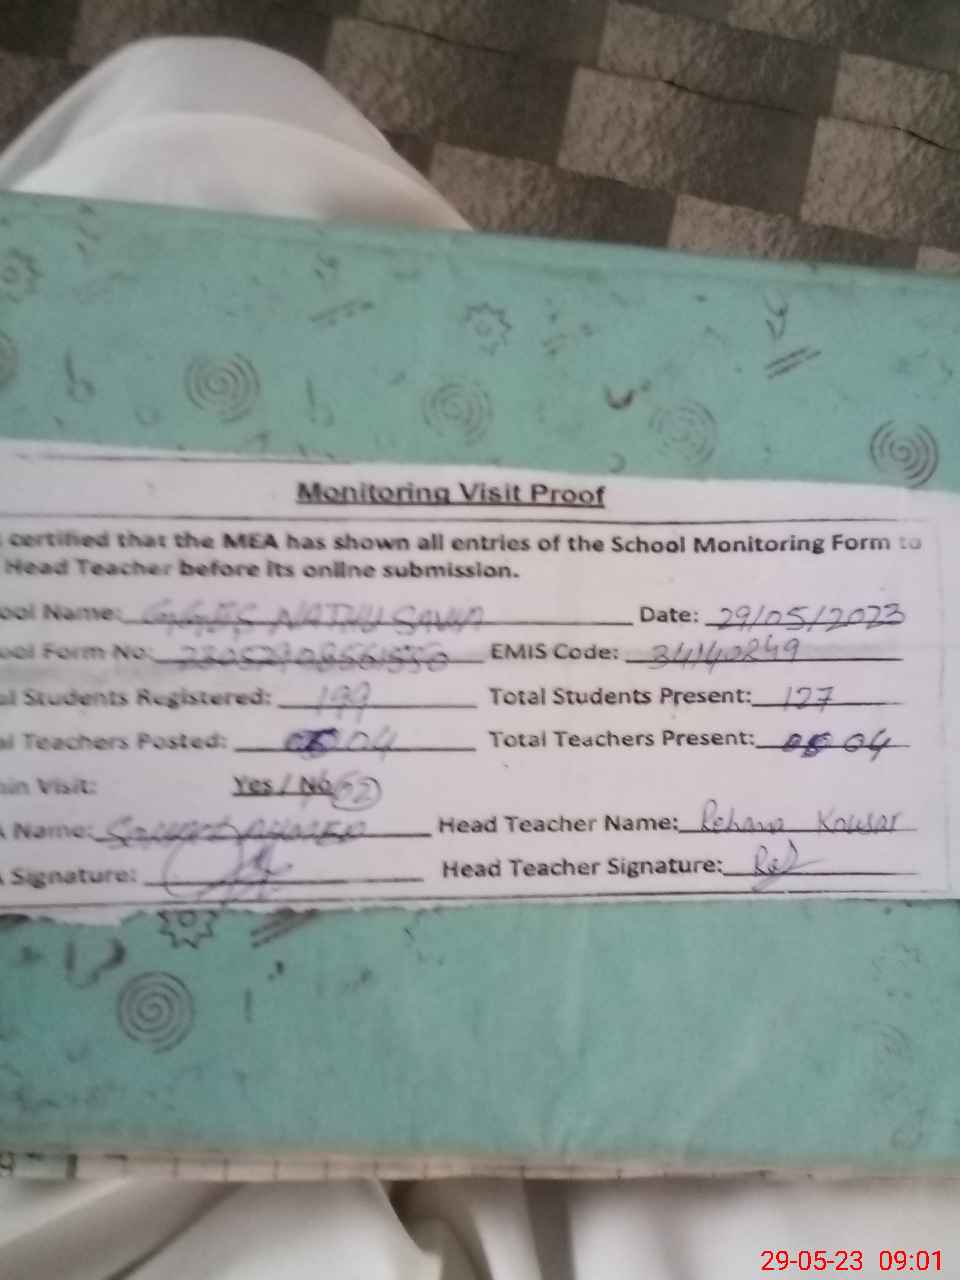 Monitoring Visit Proof
certified that the MEA has shown all entries of the School Monitoring Form to
Head Teacher before its online submission.
ool Name: GGES NATHU Date: 29/05/2023
ool Form No: EMIS Code: 34140249
al Students Registered: 199 Total Students Present: 127
al Teachers Posted: 04 Total Teachers Present: 04
in Visit: Yes / No
Name: Head Teacher Name: Rehana Kousar
Signature: Head Teacher Signature:
29-05-23 09:01